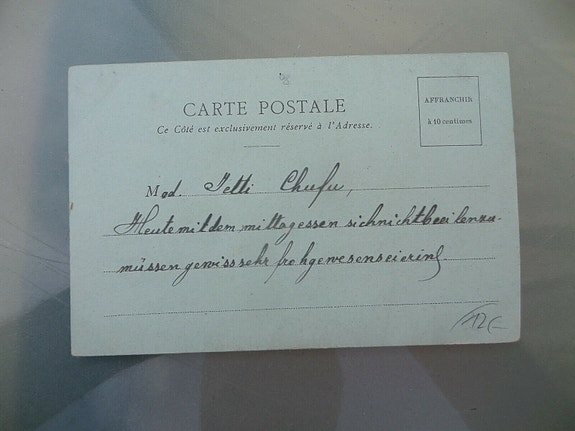 CARTE POSTALE
Ce Côté est exclusivement réservé à l'Adresse.
AFFRANCHIR
à 10 centimes
Mad. Jetti Chufu,
Heute mit dem mittagessen sich nicht beeilen zu
müssen gewiss sehr froh gewesen sei
12